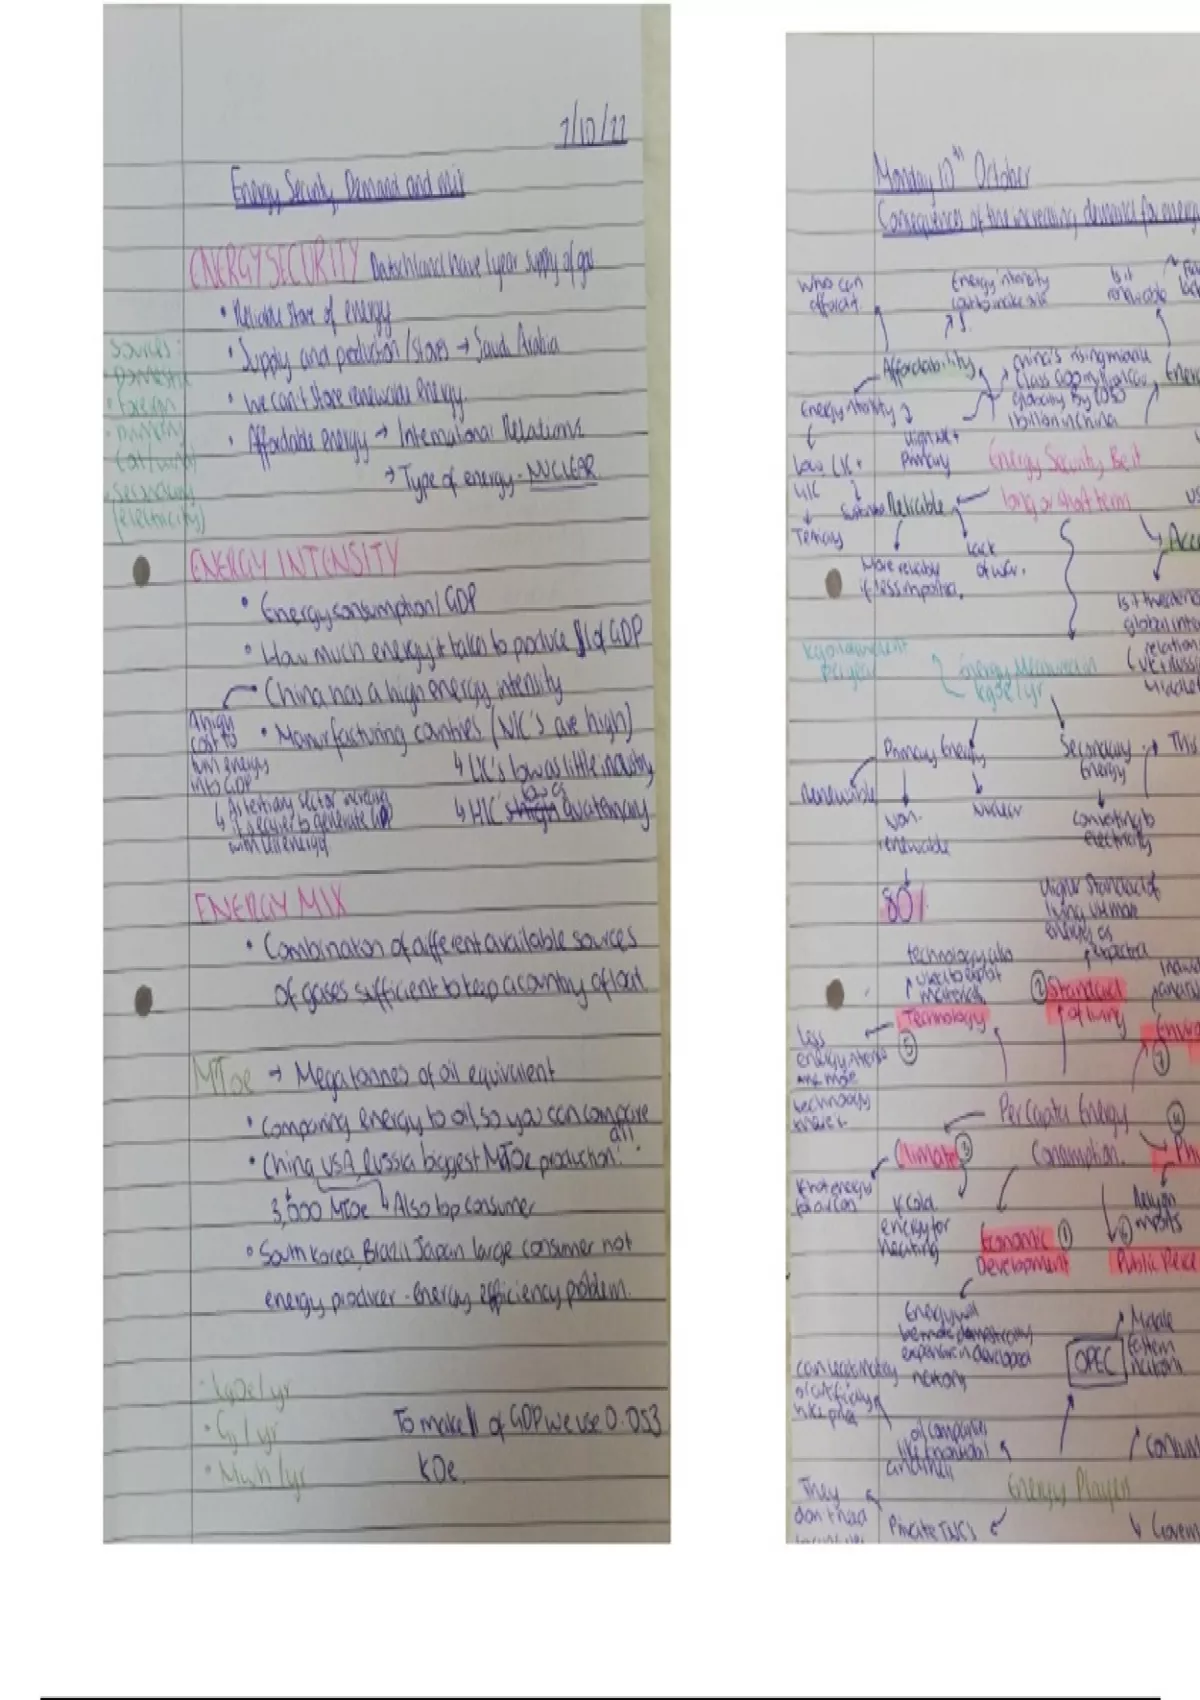 7/10/22
Energy Security, Demand and mix
ENERGY SECURITY Datschland have 1 year supply of gas
• Reliable store of energy
• Supply and production/stores → Saudi Arabia
• We can't store renewable energy.
• Affordable energy → International Relations
→ Type of energy - NUCLEAR
Sources:
• Domestic
• Foreign
• Primary
(oil/wind)
• Secondary
(electricity)
ENERGY INTENSITY
• Energy consumption / GDP
• How much energy it takes to produce $1 of GDP
China has a high energy intensity
• Manurfacturing countries (NIC's are high)
↳ LIC's low as little industry
↳ HIC's low as quaternary
A high
cost to
turn energy
into GDP
↳ As tertiary sector increases
it's easier to generate GDP
with less energy
ENERGY MIX
• Combination of different available sources
of gases sufficient to keep a country afloat
MToe → Megatonnes of oil equivalent
• Comparing energy to oil, so you can compare
all
• China, USA, Russia biggest MToe production!
3,000 MToe ↳ Also top consumer
• South Korea, Brazil, Japan large consumer not
energy producer - energy efficiency problem.
• kgoe/yr
• Gj/yr
• Mwh/yr
To make $1 of GDP we use 0.053
kOe.
Monday 10th October
Consequences of the increasing demand for energy
Who can
afford it.
Energy intensity
Is it
renewable
Affordability
China's rising middle
class 600 million
globally by 2030
1 billion in China
Energy intensity
High NIC +
Primary
Low LIC +
HIC
Tertiary
Energy Security Best
long or short term
Reliable
Lack
of war.
More reliable
if less imported.
Is it threatened
global inter
relations
kg oil equivalent
per year
Energy Measured in
kgoe/yr
Primary Energy
Secondary
Energy
This
Renewable
Non-
renewable
Nuclear
Converting to
electricity
80%
Higher standard of
living use more
energy as
expected
technology also
used to exploit
materials
Technology
② Standard
of living
Less
energy intense
and more
technology
⑤
⑦
Per Capita Energy
Consumption.
④
Climate ③
If hot energy
for air con
If cold
energy for
heating
Economic ①
Development
Rely on
imports
⑥
Public Perce
Energy will
be more domestically
expensive in developed
nations
OPEC
Middle
Eastern
nations
oil companies
Energy Players
They
don't need
Private TNC's
Govern